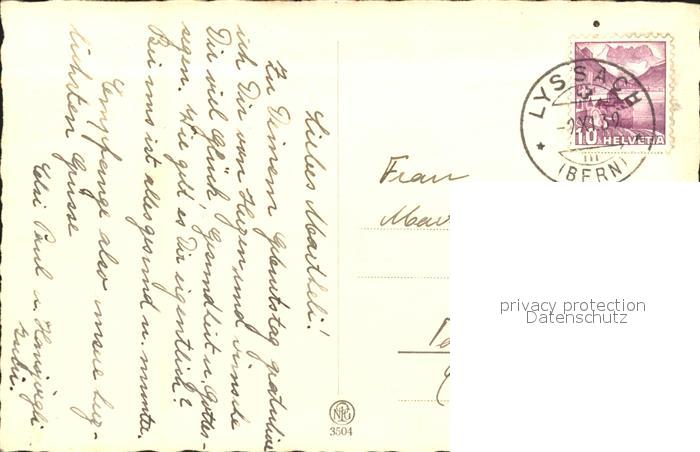 Liebes Martheli!
Zu Deinem Geburtstag gratuliere
ich Dir von Herzen und wünsche
Dir viel Glück, Gesundheit u. Gottes-
segen. Wie geht es Dir eigentlich?
Bei uns ist alles gesund u. munter.
Empfange also unsere herz-
lichsten Grüsse
Elsi Paul u. Hansjörgli
Frau
LYSSACH
(BERN)
10 HELVETIA
3504
privacy protection
Datenschutz